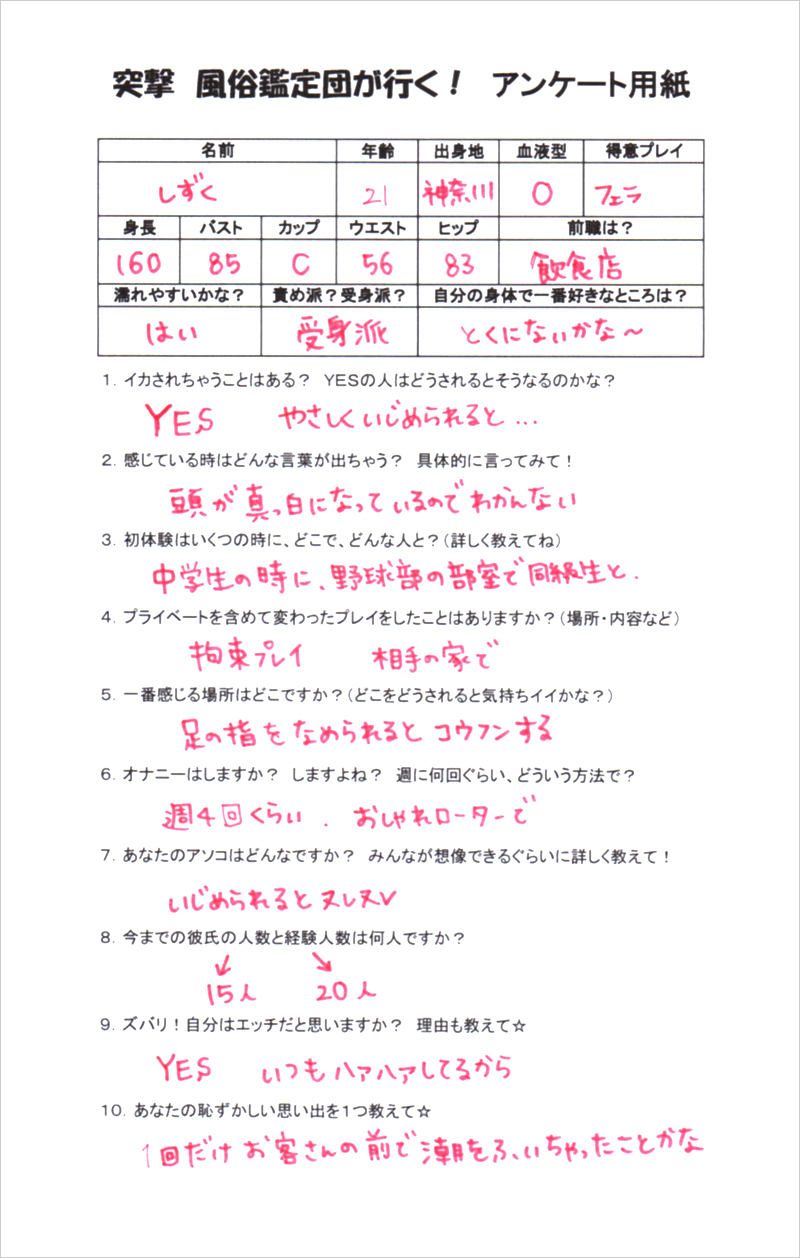 突撃 風俗鑑定団が行く！ アンケート用紙
名前 年齢 出身地 血液型 得意プレイ
しずく 21 神奈川 O フェラ
身長 バスト カップ ウエスト ヒップ 前職は？
160 85 C 56 83 飲食店
濡れやすいかな？ 責め派？受身派？ 自分の身体で一番好きなところは？
はい 受身派 とくにないかな～
１．イカされちゃうことはある？ YESの人はどうされるとそうなるのかな？
YES やさしくいじめられると…
２．感じている時はどんな言葉が出ちゃう？ 具体的に言ってみて！
頭が真っ白になっているのでわかんない
３．初体験はいくつの時に、どこで、どんな人と？（詳しく教えてね）
４．プライベートを含めて変わったプレイをしたことはありますか？（場所・内容など）
拘束プレイ 相手の家で
５．一番感じる場所はどこですか？（どこをどうされると気持ちイイかな？）
足の指をなめられるとコウフンする
６．オナニーはしますか？ しますよね？ 週に何回ぐらい、どういう方法で？
週４回くらい．おしゃれローターで
７．あなたのアソコはどんなですか？ みんなが想像できるぐらいに詳しく教えて！
いじめられるとヌレヌレ
８．今までの彼氏の人数と経験人数は何人ですか？
↙ ↘
15人 20人
９．ズバリ！自分はエッチだと思いますか？ 理由も教えて☆
YES いつもハァハァしてるから
１０．あなたの恥ずかしい思い出を１つ教えて☆
1回だけお客さんの前で潮をふいちゃったことかな